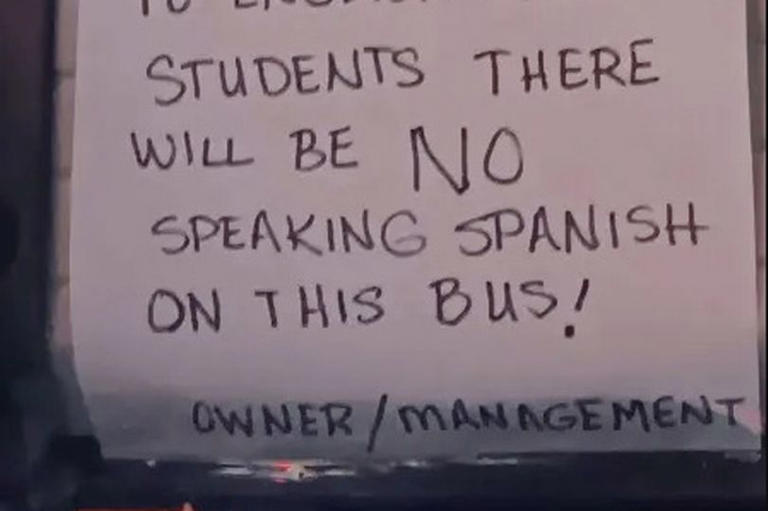 TO
STUDENTS THERE
WILL BE NO
SPEAKING SPANISH
ON THIS BUS!
OWNER/MANAGEMENT